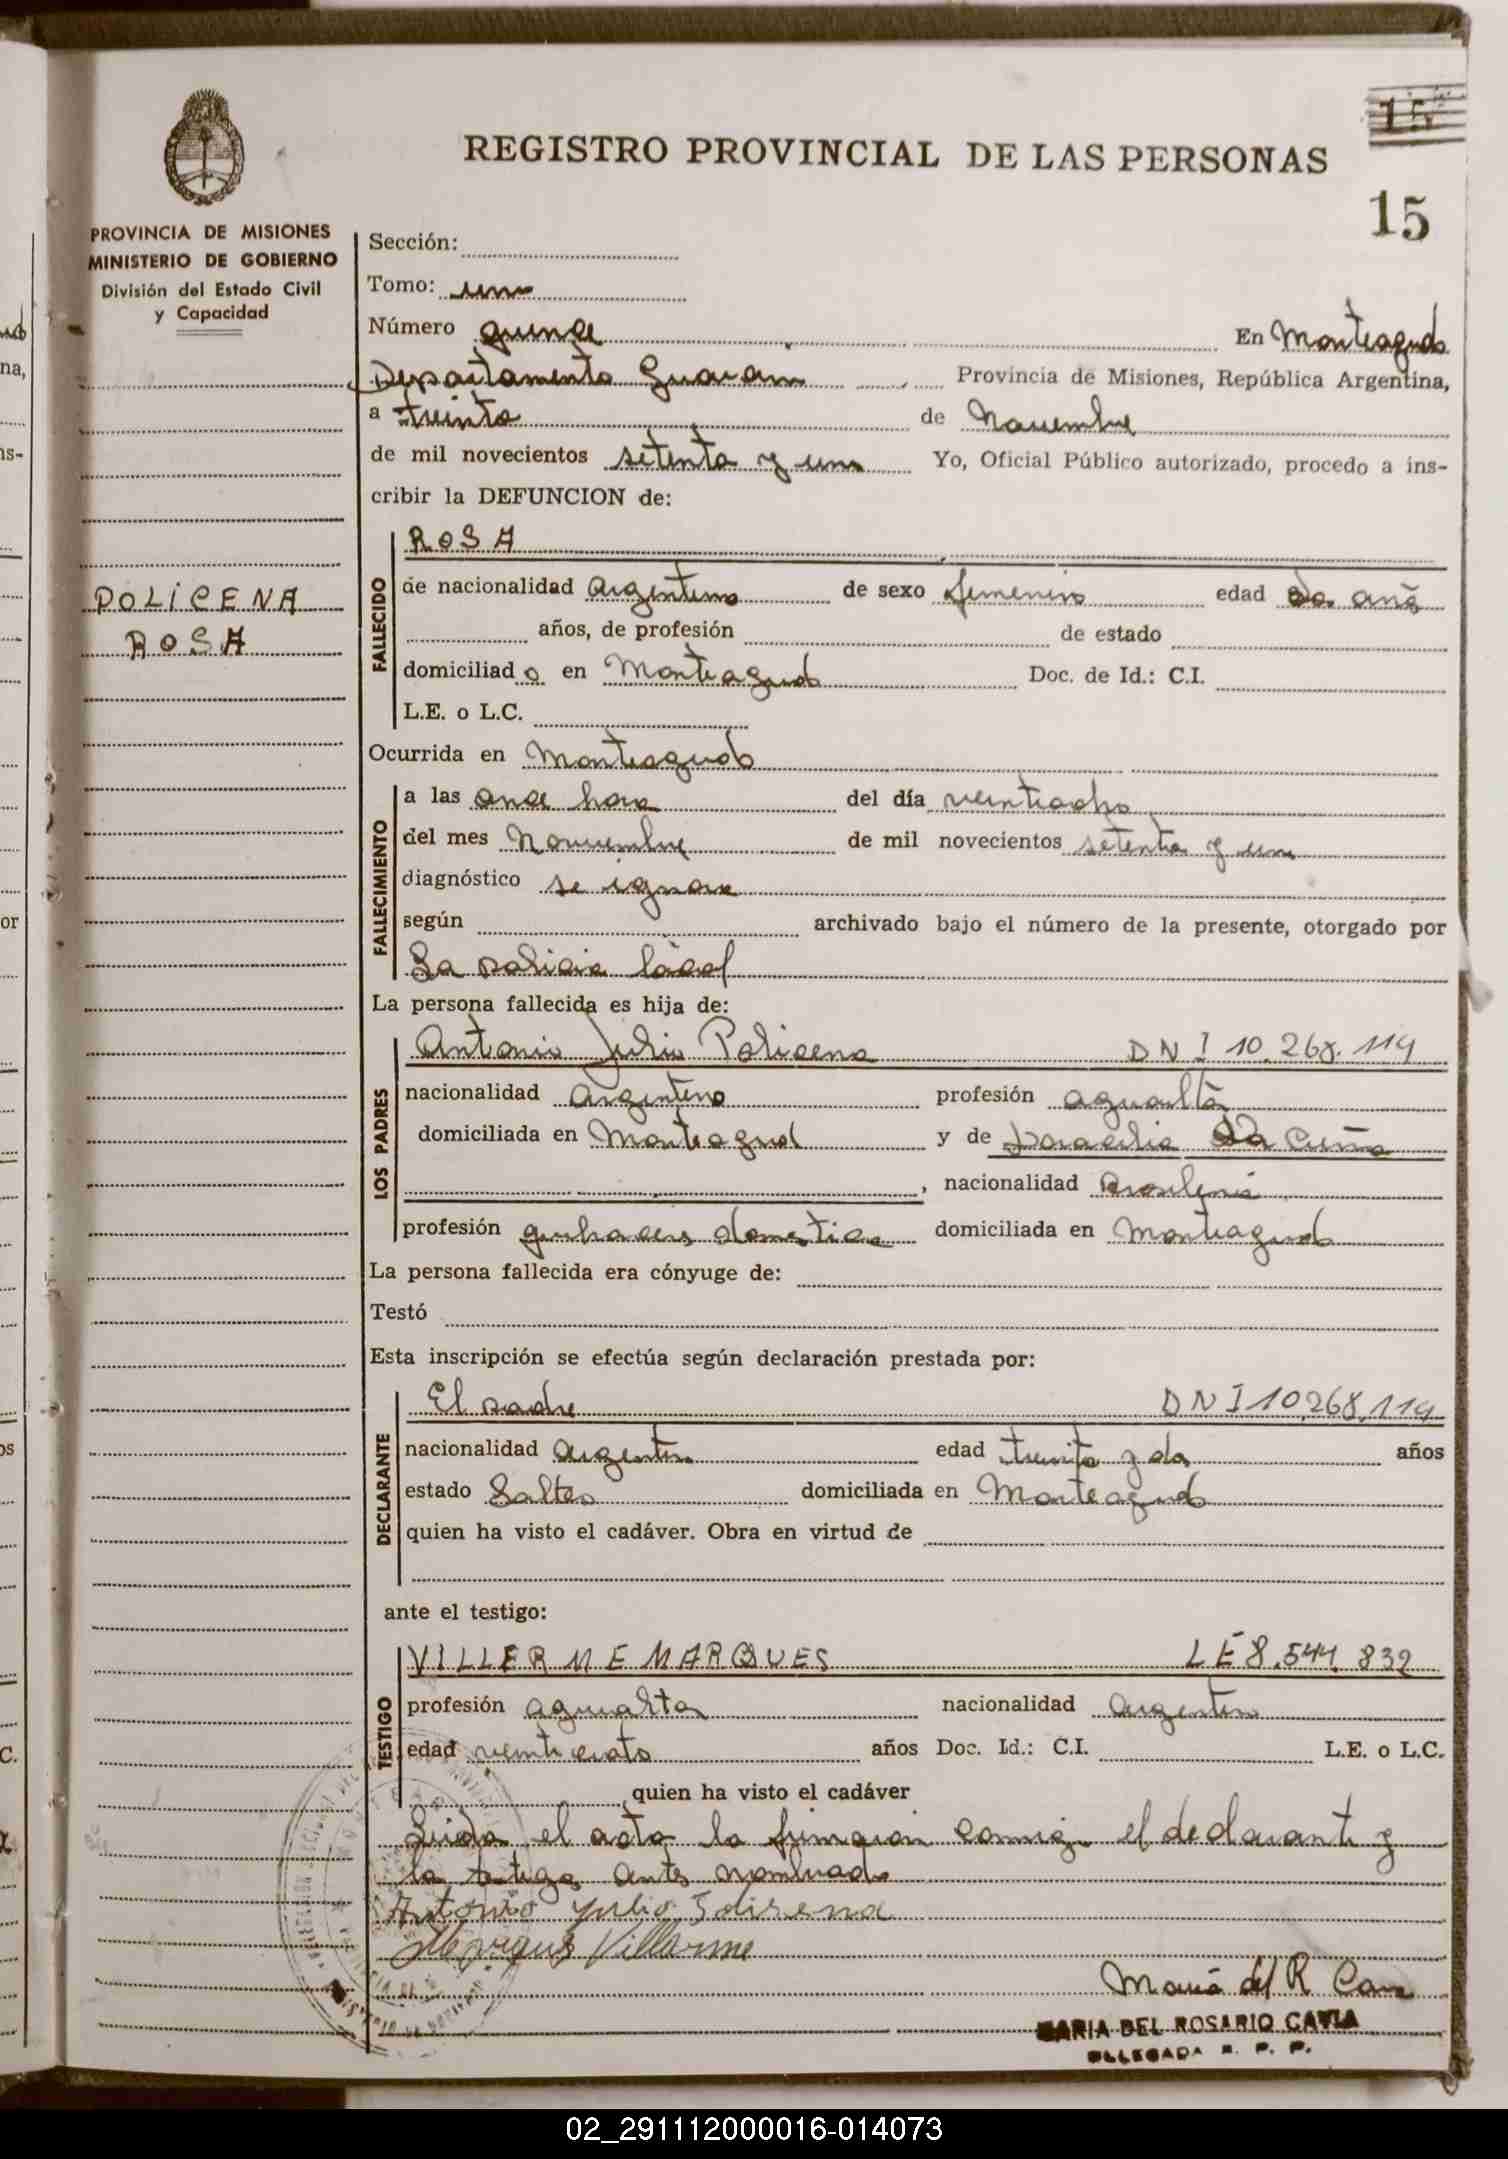 15
REGISTRO PROVINCIAL DE LAS PERSONAS
15
PROVINCIA DE MISIONES
MINISTERIO DE GOBIERNO
División del Estado Civil
y Capacidad
POLICENA
ROSA
Sección:
Tomo: uno
Número quince En Monteagudo
Departamento Guarani Provincia de Misiones, República Argentina,
a treinta de Noviembre
de mil novecientos setenta y uno Yo, Oficial Público autorizado, procedo a ins-
cribir la DEFUNCION de:
FALLECIDO
ROSA
de nacionalidad Argentina de sexo femenino edad
años, de profesión de estado
domiciliad o en Monteagudo Doc. de Id.: C.I.
L.E. o L.C.
Ocurrida en Monteagudo
FALLECIMIENTO
a las once hora del día veintiocho
del mes Noviembre de mil novecientos setenta y uno
diagnóstico se ignora
según archivado bajo el número de la presente, otorgado por
La policia local
La persona fallecida es hija de:
LOS PADRES
Antonio Julio Policena DNI 10.268.119
nacionalidad Argentino profesión
domiciliada en Monteagudo y de Da Cuña
, nacionalidad
profesión quehaceres domestica domiciliada en Monteagudo
La persona fallecida era cónyuge de:
Testó
Esta inscripción se efectúa según declaración prestada por:
DECLARANTE
El padre DNI 10,268,119
nacionalidad Argentin edad treinta y dos años
estado Soltero domiciliada en Monteagudo
quien ha visto el cadáver. Obra en virtud de
ante el testigo:
TESTIGO
VILLERME MARQUES LE 8.544.832
profesión nacionalidad Argentino
edad años Doc. Id.: C.I. L.E. o L.C.
quien ha visto el cadáver
Leida el acta la firman conmigo el declarante y
la testigo antes nombrado
Antonio Julio
Marques Villerme
Maria del R Cavia
MARIA DEL ROSARIO CAVIA
DELEGADA R. P. P.
02_291112000016-014073